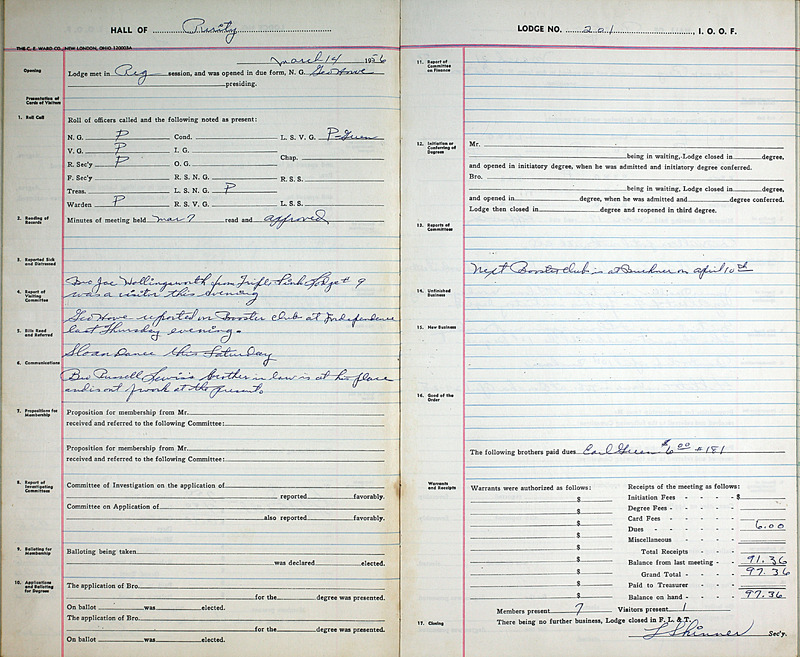 HALL OF Purity
THE C. E. WARD CO. NEW LONDON, OHIO 120003A
March 14 1956
Opening
Lodge met in Reg session, and was opened in due form, N. G. Geo Howe
presiding.
Presentation of
Cards of Visitors
1. Roll Call
Roll of officers called and the following noted as present:
N. G. P Cond. L. S. V. G. P-Green
V. G. P I. G.
Chap.
R. Sec'y P O. G.
F. Sec'y R. S. N. G. R. S. S.
Treas. L. S. N. G. P
Warden P R. S. V. G. L. S. S.
2. Reading of
Records
Minutes of meeting held Mar 7 read and approved
3. Reported Sick
and Distressed
Bro Joe Hollingsworth from Triple Link Lodge # 9
was a visitor this evening
4. Report of
Visiting
Committee
Geo Howe reported on Booster Club at Independence
last Thursday evening.
5. Bills Read
and Referred
Sloan Dance this Saturday
6. Communications
Bro Russell Lewis's brother in law is at his place
and is out of work at the present.
7. Propositions for
Membership
Proposition for membership from Mr.
received and referred to the following Committee:
Proposition for membership from Mr.
received and referred to the following Committee:
8. Report of
Investigating
Committees
Committee of Investigation on the application of
reported favorably.
Committee on Application of
also reported favorably.
9. Balloting for
Membership
Balloting being taken
was declared elected.
10. Applications
and Balloting
for Degrees
The application of Bro.
for the degree was presented.
On ballot was elected.
The application of Bro.
for the degree was presented.
On ballot was elected.
LODGE NO. 201, I. O. O. F.
11. Report of
Committee
on Finance
12. Initiation or
Conferring of
Degrees
Mr.
being in waiting, Lodge closed in degree,
and opened in initiatory degree, when he was admitted and initiatory degree conferred.
Bro.
being in waiting, Lodge closed in degree,
and opened in degree, when he was admitted and degree conferred.
Lodge then closed in degree and reopened in third degree.
13. Reports of
Committees
Next Booster Club is at Buckner on April 10th
14. Unfinished
Business
15. New Business
16. Good of the
Order
The following brothers paid dues Earl Green $6 00 #181
Warrants
and Receipts
Warrants were authorized as follows:
$
$
$
$
$
$
$
$
$
Receipts of the meeting as follows:
Initiation Fees - - - - - $
Degree Fees - - - - -
Card Fees - - - - -
Dues - - - - - 6.00
Miscellaneous - - - - -
Total Receipts - - - -
Balance from last meeting - - - 91.36
Grand Total - - - - 97.36
Paid to Treasurer - - - -
Balance on hand - - - - 97.36
Members present 7 Visitors present 1
17. Closing
There being no further business, Lodge closed in F. L. & T.
L Skinner Sec'y.